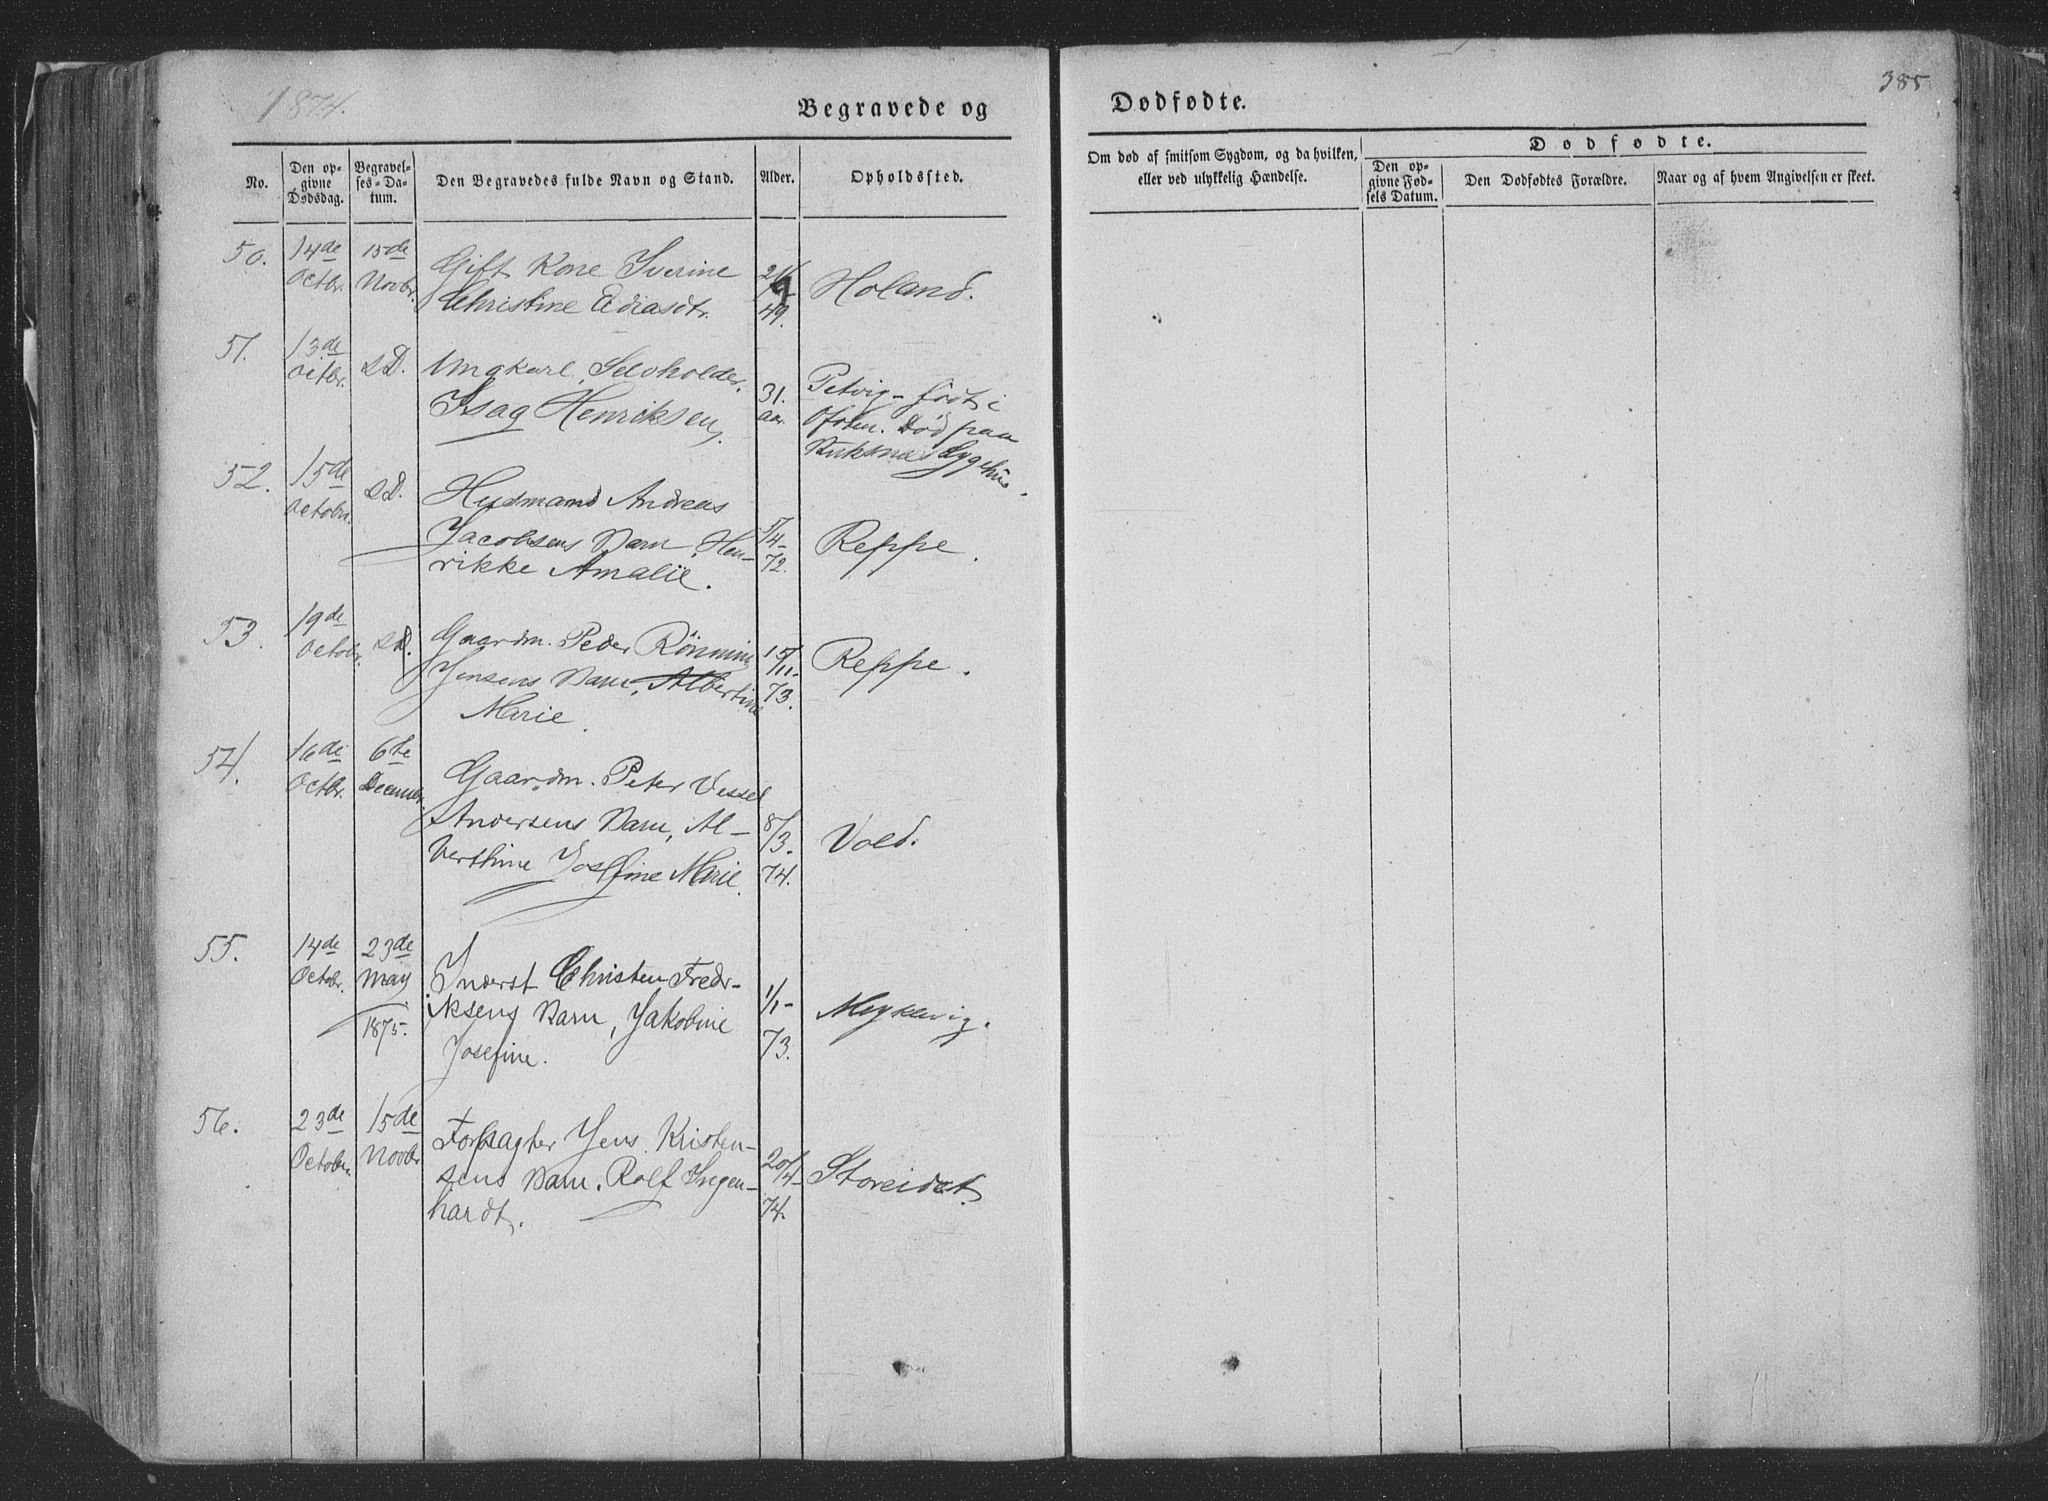 1874.
Begravede og
Dødfødte.
385
No.
Den opgivne Dødsdag.
Begravelses-Datum.
Den Begravedes fulde Navn og Stand.
Alder.
Opholdssted.
Om død af smitsom Sygdom, og da hvilken, eller ved ulykkelig Hændelse.
Dødfødte.
Den opgivne Fødsels Datum.
Den Dødfødtes Forældre.
Naar og af hvem Angivelsen er skeet.
50. 14de 15de Gift Kone Sverine
Octbr. Novbr. Christine Ediasdtr. 49. Holand.
51. 13de Octbr. S.D. Ungkarl, Selvholder
Isag Henriksen 31. aar. Petvig - født i
Ofoten. Død paa
Sygehus.
52. 15de Octobr. S.D. Husmand Andreas
Jacobsens Barn, Hen-
rikke Amalie. 5/4-72. Reppe.
53. 19de Octobr. S.D. Gaardm. Peder Rönning
Jensens Barn, Albertine
Marie. 15/11-73. Reppe.
54. 16de 6te Gaardm. Peter Vessel
Octbr. Decembr. Andersens Barn, Al-
berthine Josefine Marie. 8/3.74. Vold.
55. 14de 23de
Octobr. May Inderst Christen Fredr-
1875. iksens Barn, Jakobine
Josefine. 1/1-73. Meykelvig.
56. 23de 15de
Octobr. Novbr. Forpagter Jens Kristen-
sens Barn. Rolf Ingen-
hardt. 20/4-74. Storeidet.